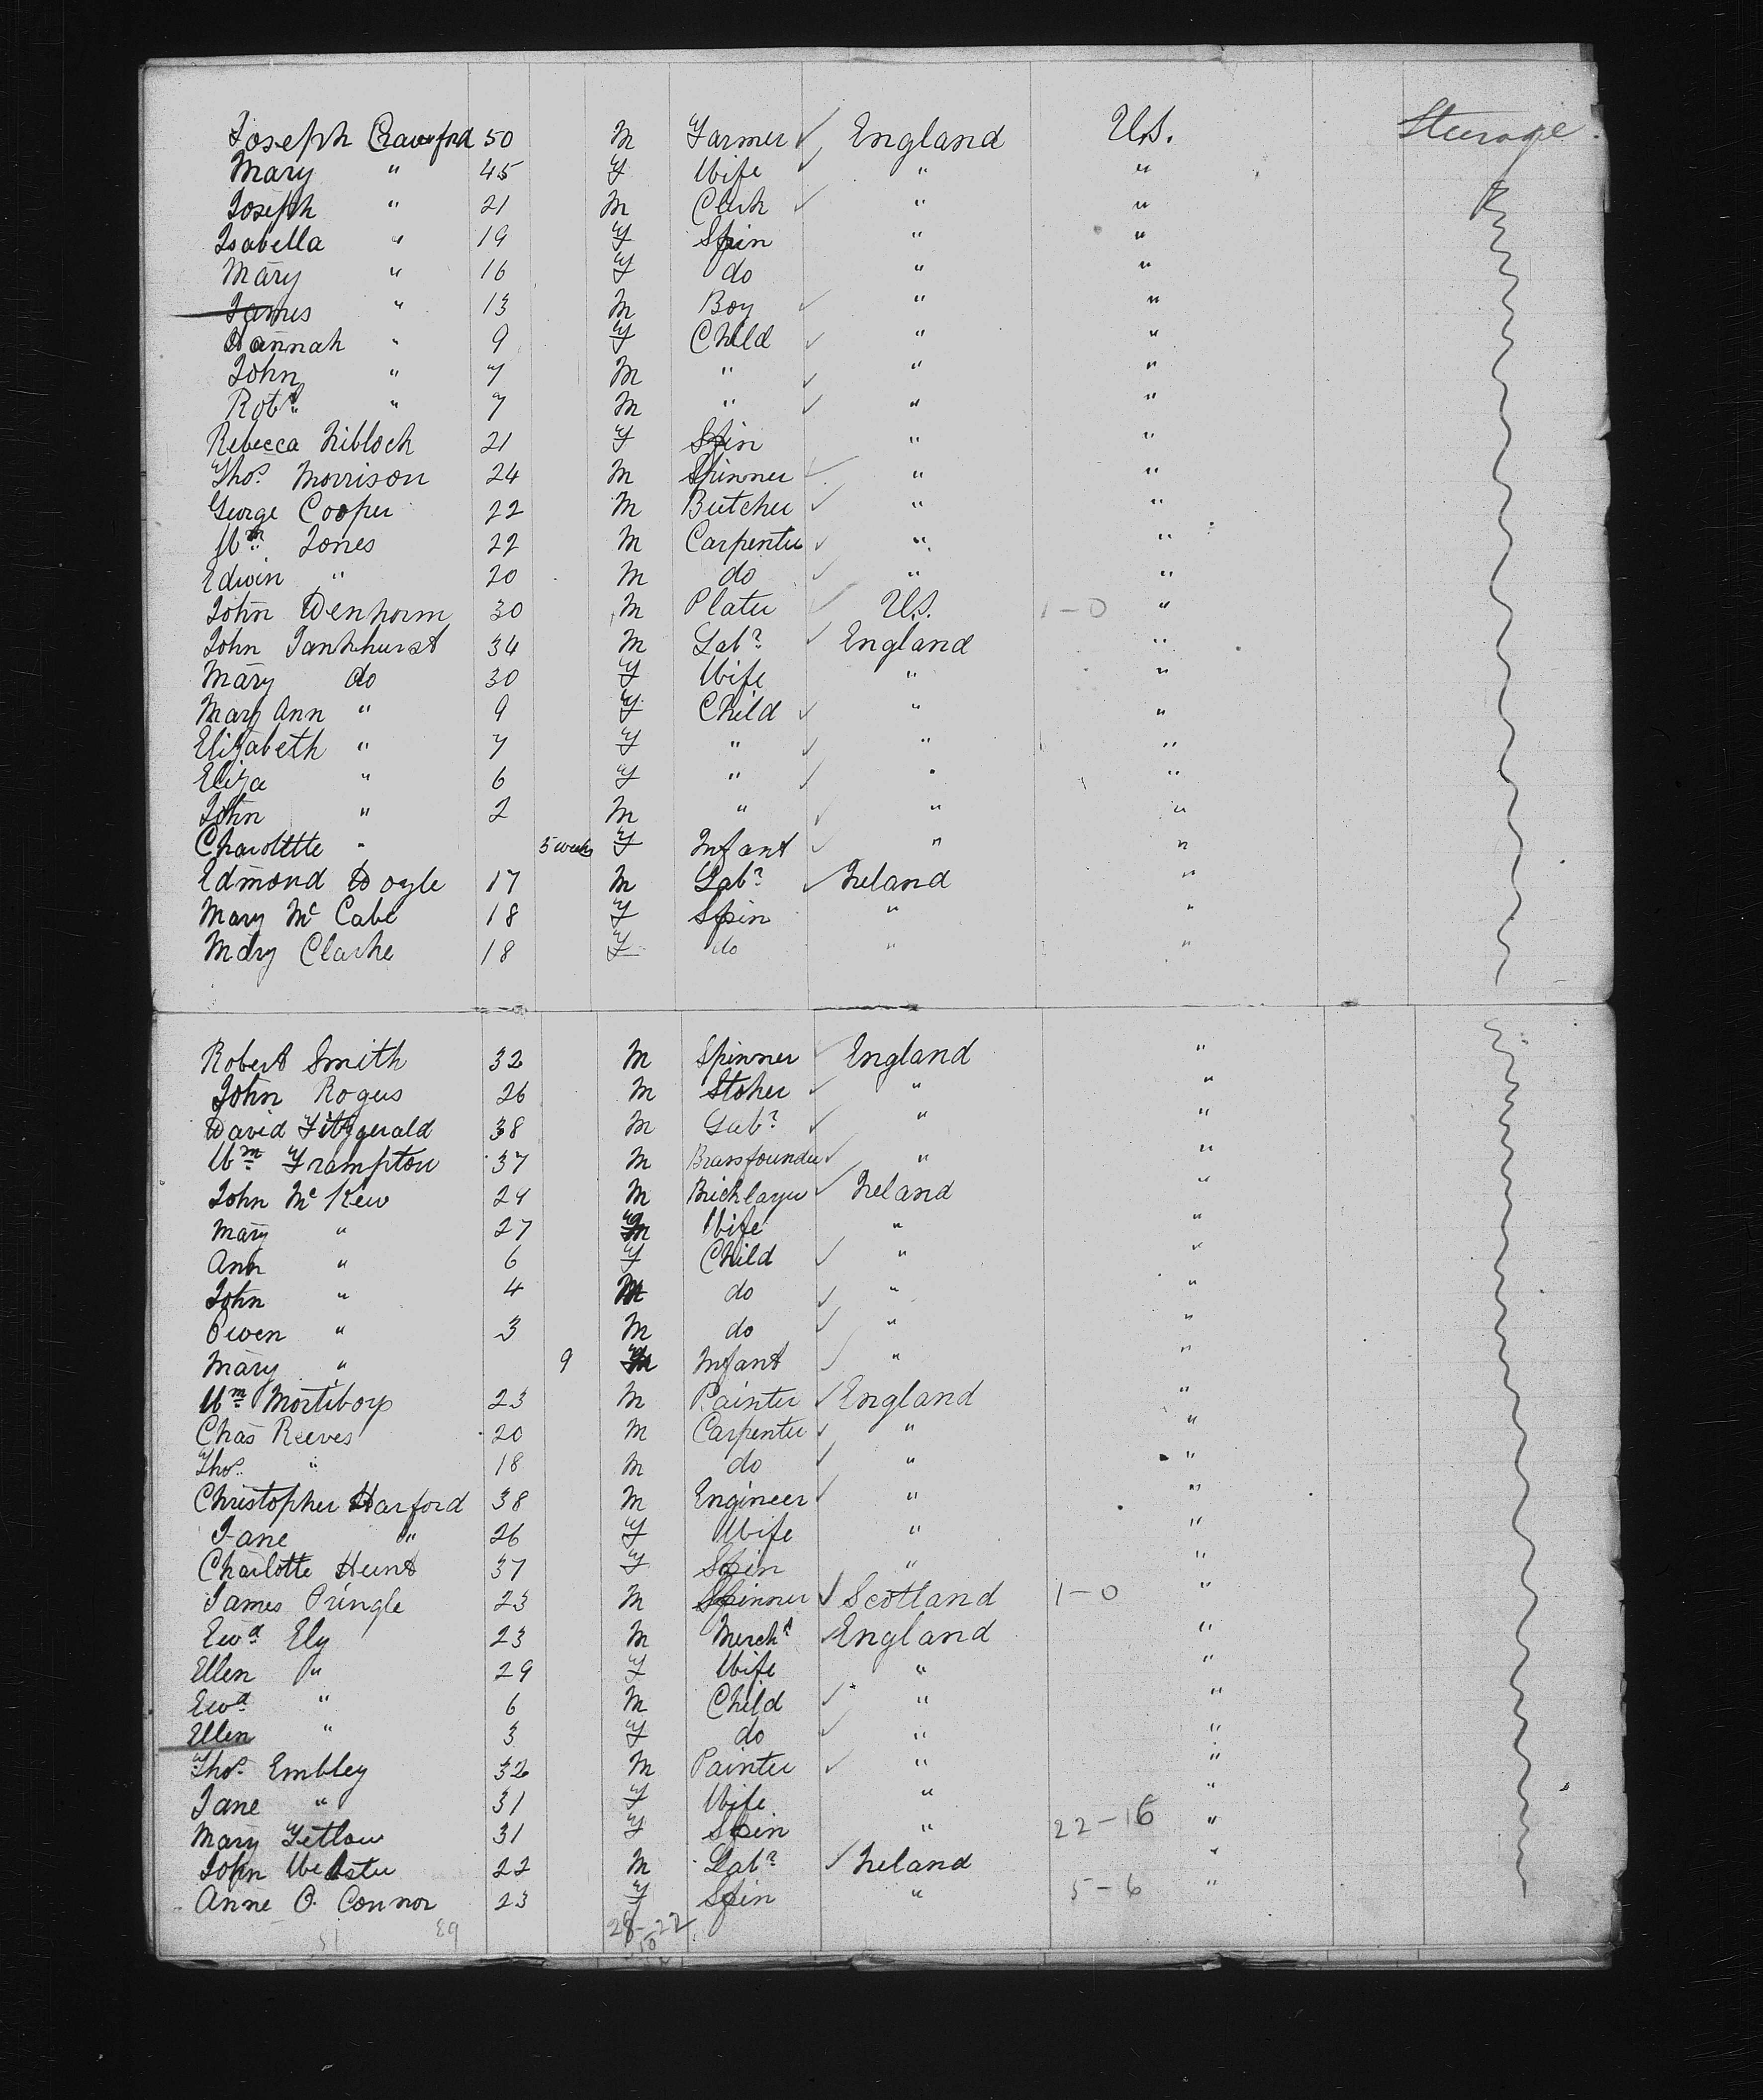 Joseph Crawford 50 M Farmer England U.S. Steerage
Mary " 45 F Wife " "
Joseph " 21 M Clerk " "
Isabella " 19 F Spin " "
Mary " 16 F do " "
James " 13 M Boy " "
Hannah " 9 F Child " "
John " 7 M " " "
Robt " 7 M " " "
Rebecca Niblock 21 F Spin " "
Thos. Morrison 24 M Spinner " "
George Cooper 22 M Butcher " "
Wm Jones 22 M Carpenter " "
Edwin " 20 M do " "
John Denhorm 30 M Plater U.S. 1-0 "
John Tankhurst 34 M Labr England "
Mary do 30 F Wife " "
Mary Ann " 9 F Child " "
Elizabeth " 7 F " " "
Eliza " 6 F " " "
John " 2 M " " "
Charolttte " 5 weeks F Infant " "
Edmond Doyle 17 M Labr Ireland "
Mary Mc Cabe 18 F Spin " "
Mary Clarke 18 F do " "
Robert Smith 32 M Spinner England "
John Rogers 26 M Stoker " "
David Fitzgerald 38 M Labr " "
Wm Frampton 37 M Brassfounder " "
John Mc Kew 29 M Bricklayer Ireland "
Mary " 27 F Wife " "
Ann " 6 F Child " "
John " 4 M do " "
Owen " 3 M do " "
Mary " 9 F Infant " "
Wm Mortiboys 23 M Painter England "
Chas Reeves 20 M Carpenter " "
Thos. " 18 M do " "
Christopher Harford 38 M Engineer " "
Jane " 26 F Wife " "
Charlotte Hunt 37 F Spin " "
James Pringle 23 M Spinner Scotland 1-0 "
Ewd Ely 23 M Mercht England "
Ellen " 29 F Wife " "
Ewd " 6 M Child " "
Ellen " 3 F do " "
Thos. Embley 32 M Painter " "
Jane " 31 F Wife " "
Mary Yetlow 31 F Spin " 22-16 "
John Webster 22 M Labr Ireland "
Anne O. Connor 23 F Spin " 5-6 "